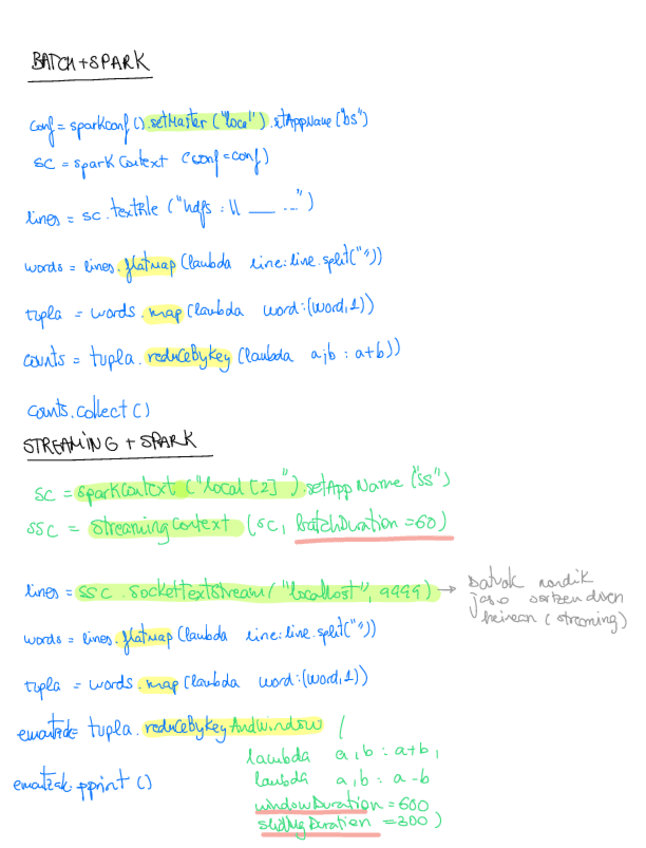 BATCH + SPARK
conf = sparkconf().setMaster("local").setAppName("bs")
sc = spark Context (conf=conf)
lines = sc.textFile ("hdfs : \\ __ ...")
words = lines.flatmap (lambda line: line.split(" "))
tupla = words.map (lambda word: (word,1))
counts = tupla.reduceByKey (lambda a,b : a+b))
counts.collect()
STREAMING + SPARK
sc = sparkContext ("local [2]").setApp Name ("ss")
ssc = StreamingContext (sc, BatchDuration = 60)
lines = ssc.sockettextstream("localhost", 9999) → Datuak nondik
jaso sortzen diren
heinean (streaming)
words = lines.flatmap (lambda line: line.split(" "))
tupla = words.map (lambda word: (word,1))
ematzak = tupla.reduceByKey AndWindow (
lambda a,b : a+b,
lambda a,b : a-b
ematzak.pprint ()
windowDuration = 600
slidingDuration = 300 )